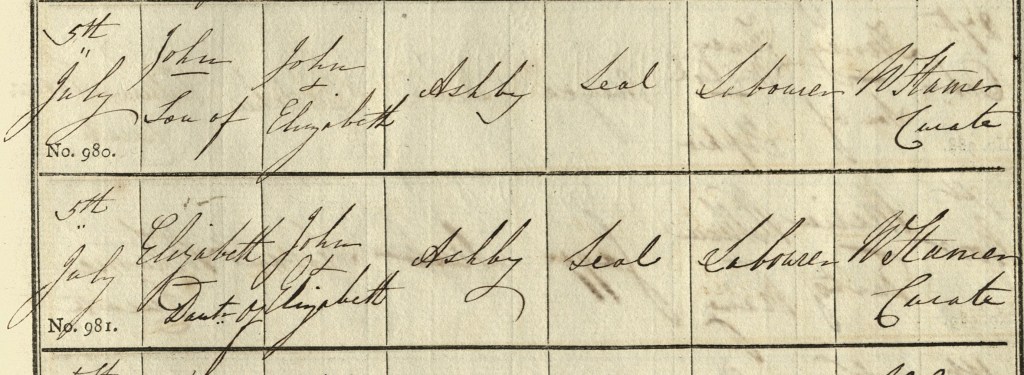 5th July
No. 980.
John
Son of
John
+
Elizabeth
Ashby
Seal
Labourer
W Hamer
Curate
5th July
No. 981.
Elizabeth
Dautr. of
John
+
Elizabeth
Ashby
Seal
Labourer
W Hamer
Curate